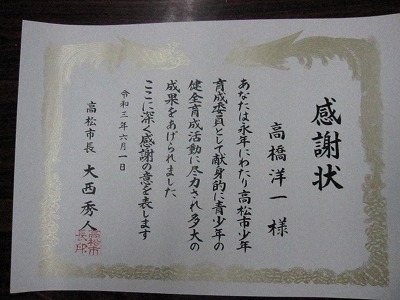 感謝状
高橋洋一 様
あなたは永年にわたり高松市少年
育成委員として献身的に青少年の
健全育成活動に尽力され多大の
成果をあげられました
ここに深く感謝の意を表します
令和三年六月一日
高松市長 大西秀人
高松市長印